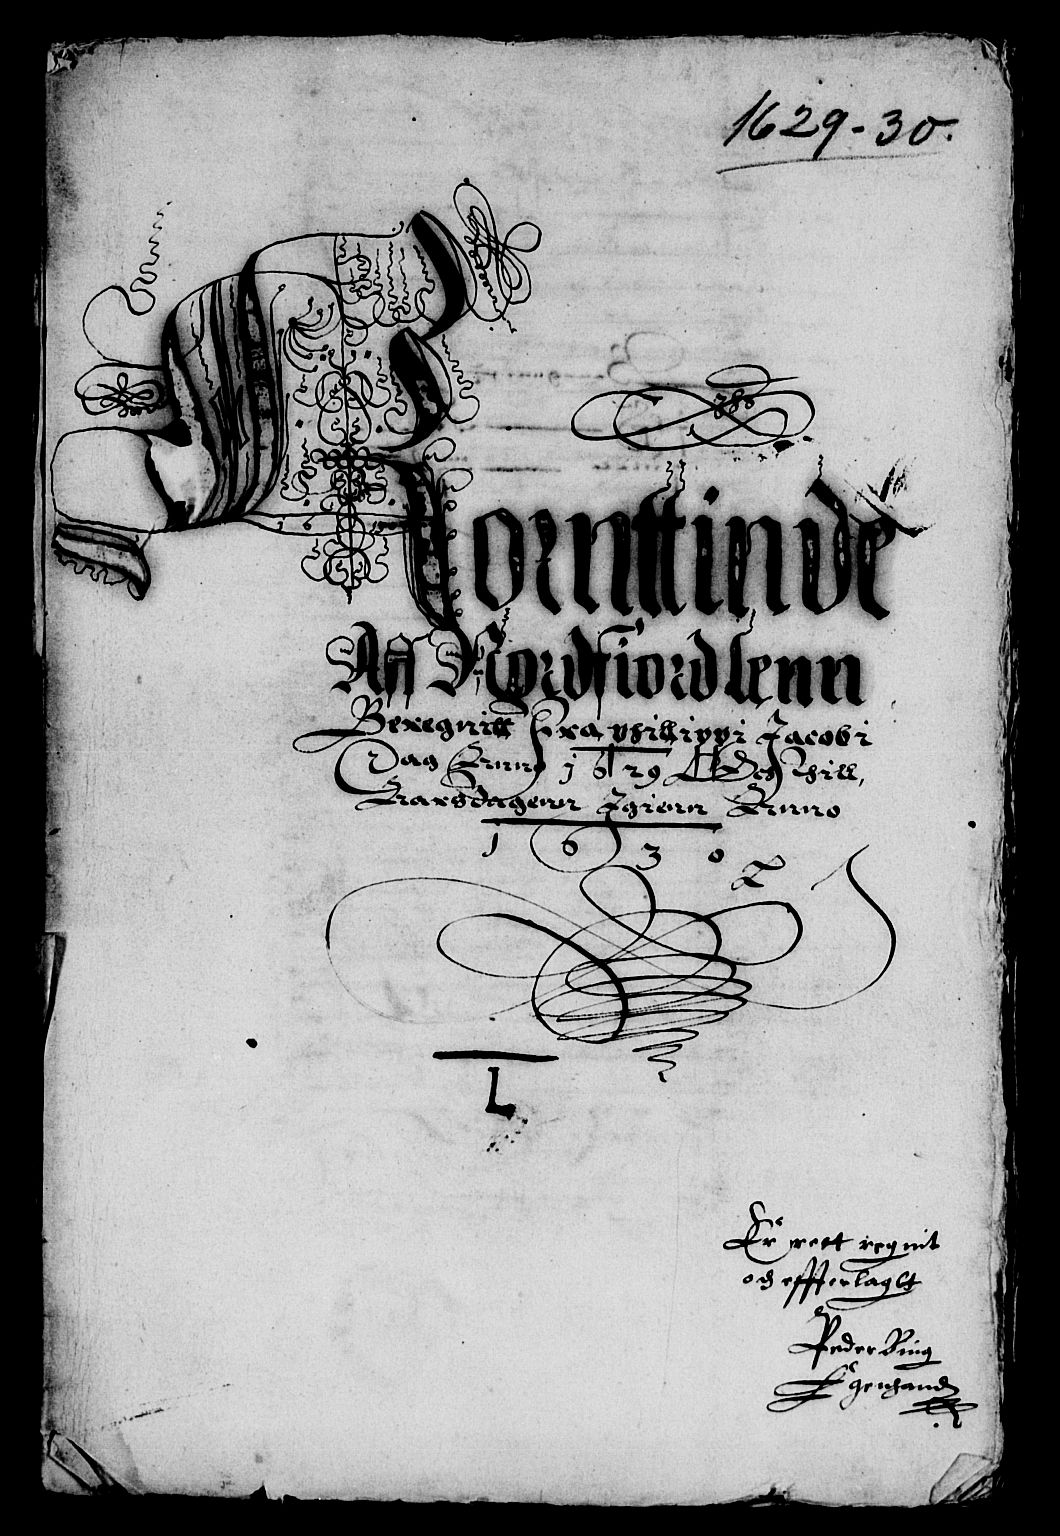 1629-30.
Kornttinde
Aff Nordfiord lenn
Beregnitt Fra philippi Jacobi
Dag Anno 1629 Och thill
Aarsdagenn Jgienn Anno
1630
L
Er rett regnit
och effterlagtt
Peder Ring
Egenhand